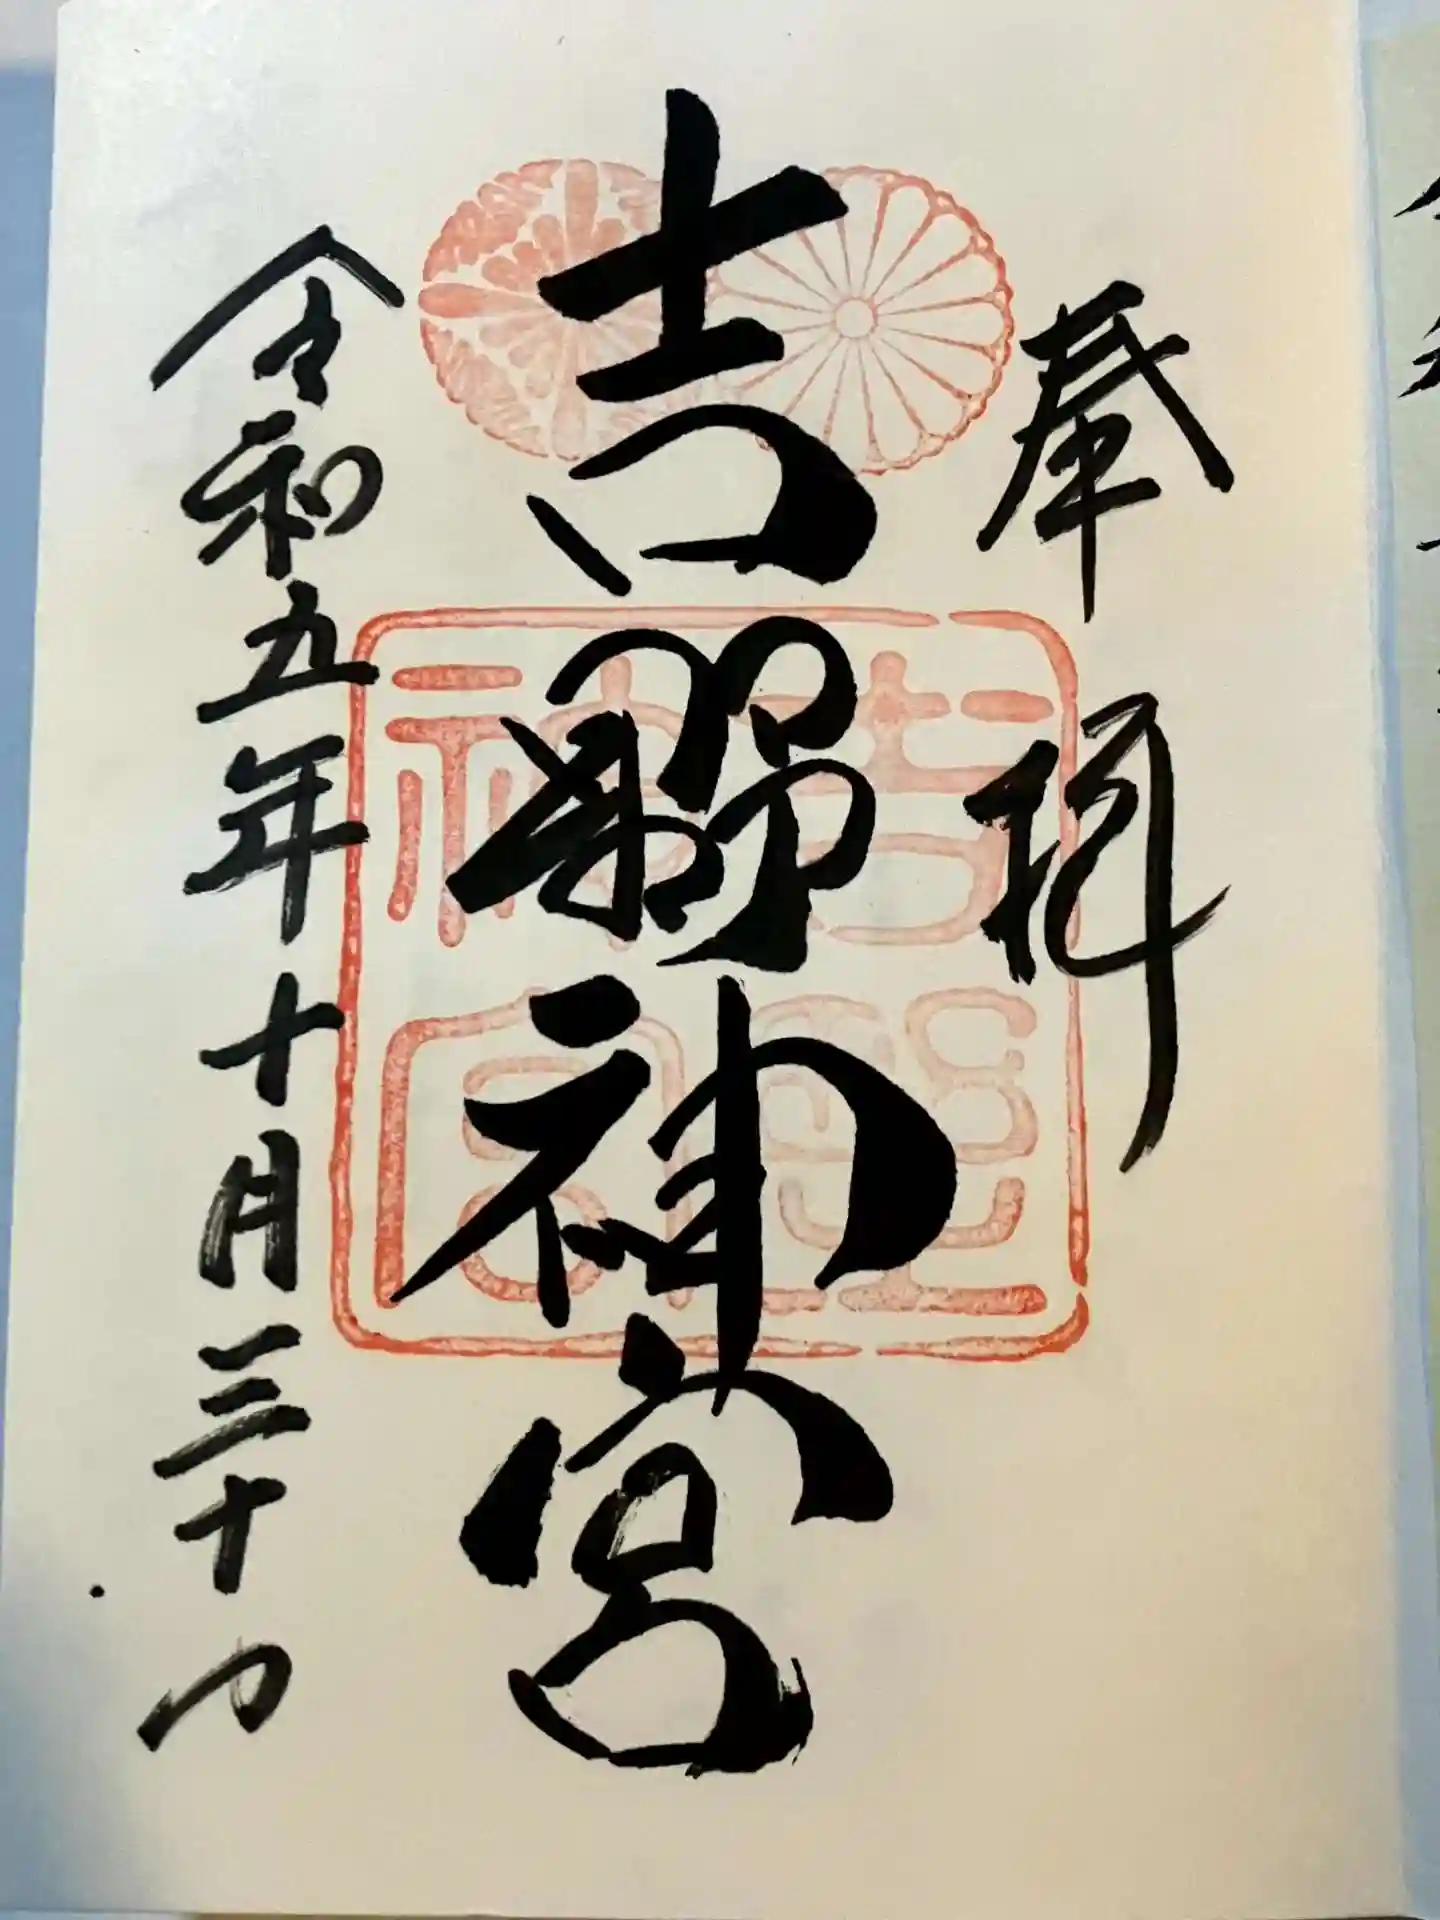 奉拝
吉野神宮
吉野
神宮
令和五年十月三十日